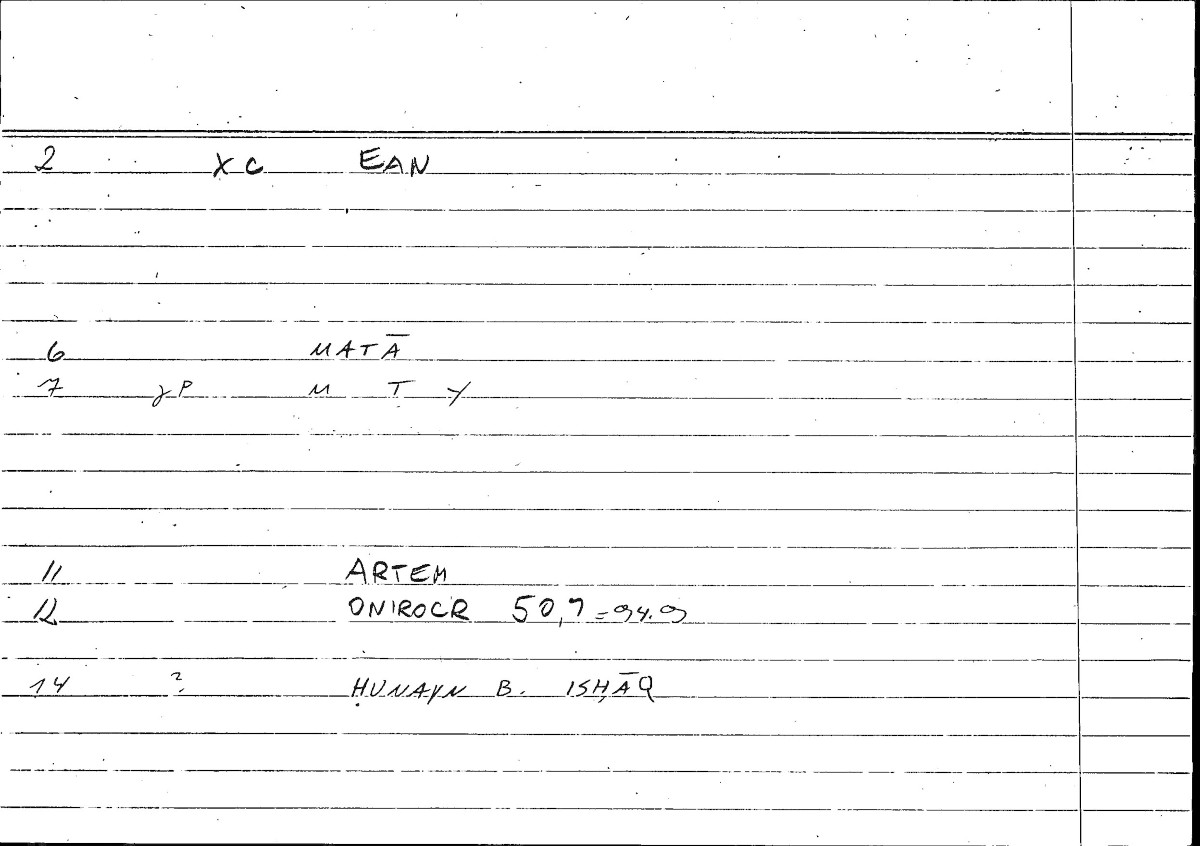 2 XC EAN
6 MATĀ
7 γP M T Y
11 ARTEM
12 ONIROCR 50,9 = 94.9
14 ? ḤUNAYN B. ISḤĀQ